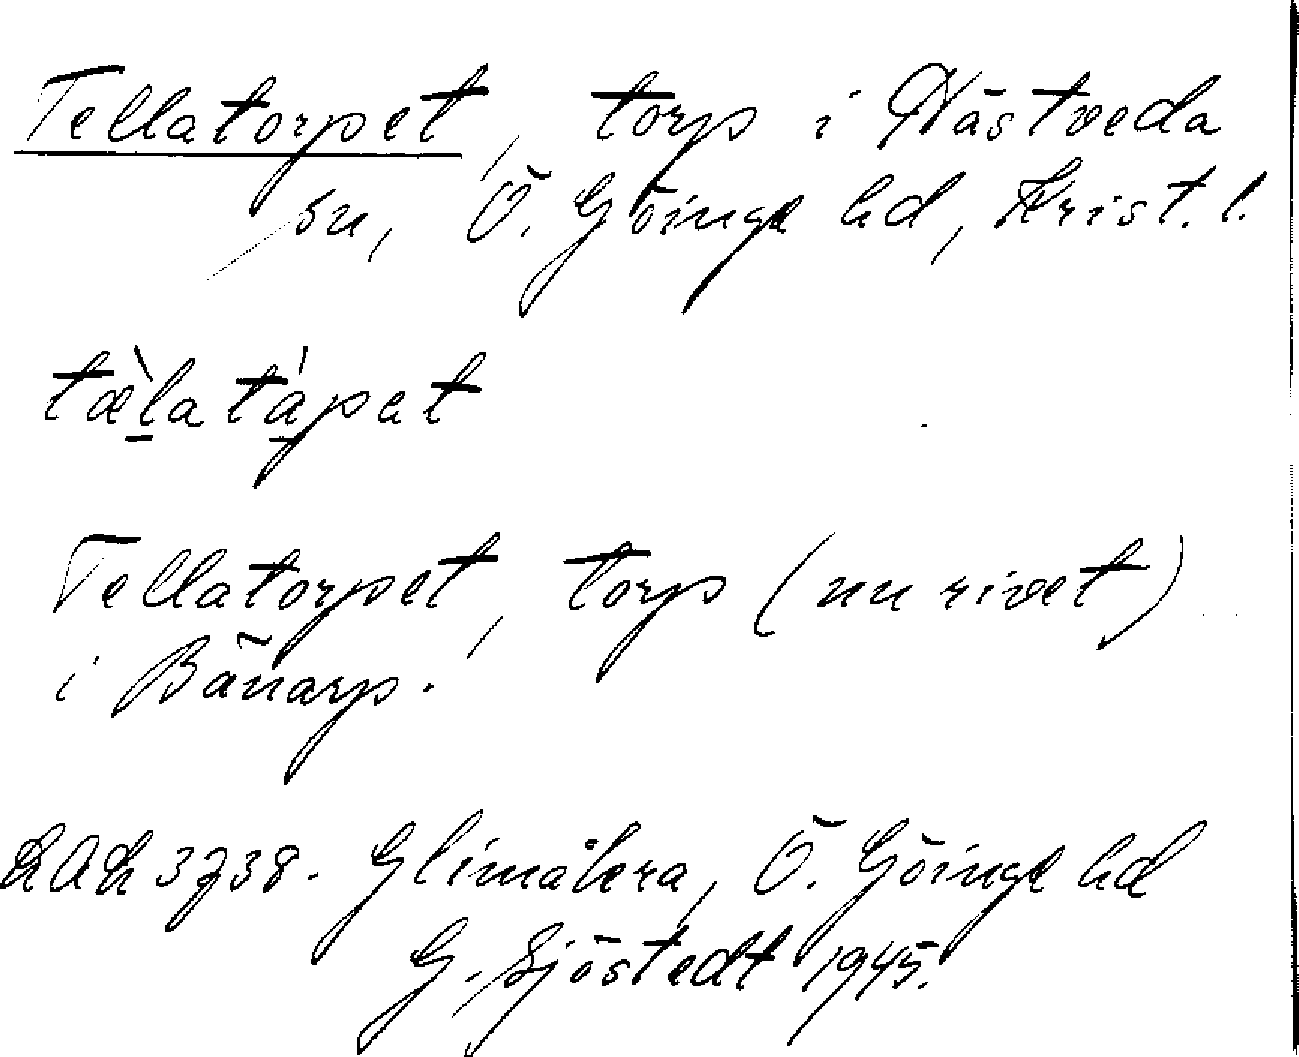 Tellatorpet, torp i Nästveda
sn, Ö. Göinge hd, Krist. l.
tæ̀latápat
Tellatorpet, torp (nu rivet)
i Bänarp.
LAL 3738. Glimåkra, Ö. Göinge hd
G. Sjöstedt 1945.